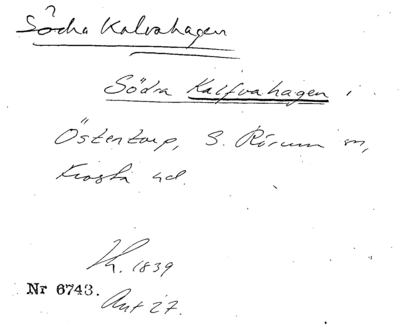 Södra Kalvahagen
Södra Kalfvahagen i
Östentorp, S. Rörum sn,
Frosta hd.
Lh. 1839
Nr 6743.
Akt 27.